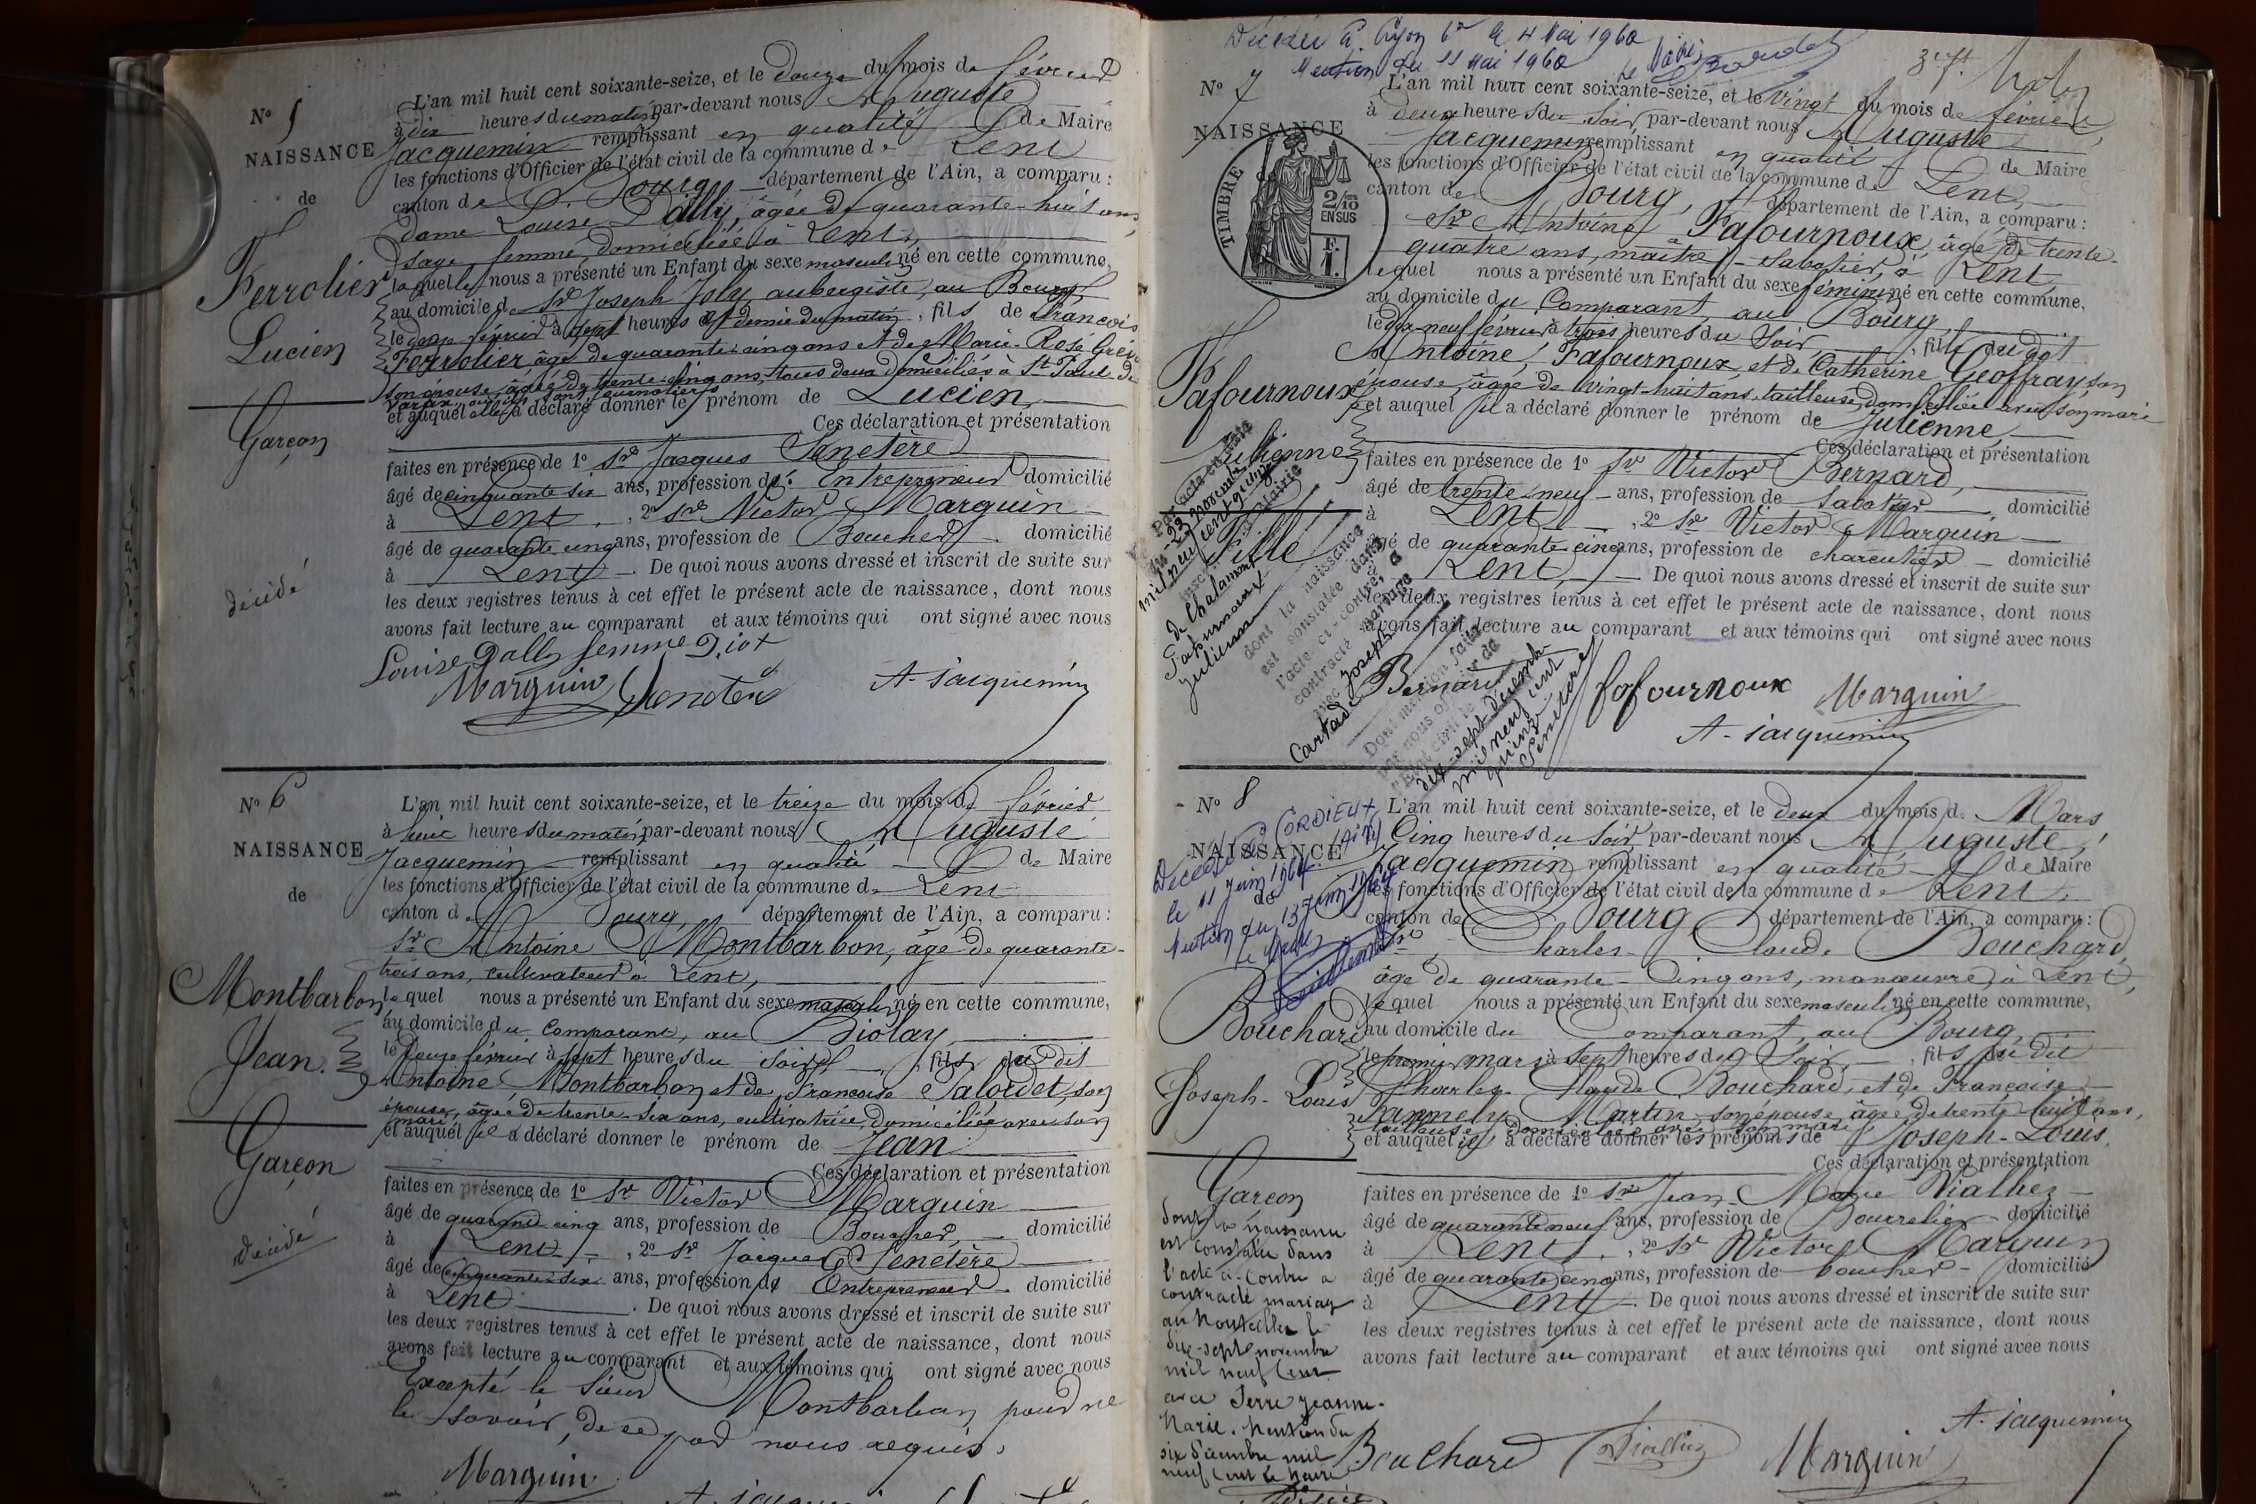 N° 5
NAISSANCE
de
Ferrolier
Lucien
Garçon
décédé
L'an mil huit cent soixante-seize, et le douze du mois de février
à dix heures du matin par-devant nous Auguste
Jacquemin remplissant en qualité de Maire
les fonctions d'Officier de l'état civil de la commune de Lent
canton de Bourg département de l'Ain, a comparu :
Dame Louise Dally, âgée de quarante-huit ans,
sage femme, domiciliée à Lent,
laquelle nous a présenté un Enfant du sexe masculin né en cette commune,
au domicile de Sr Joseph Joly aubergiste, au Bourg
le douze février à sept heures et demie du matin, fils de François
Ferrolier âgé de quarante-cinq ans et de Marie-Rose
son épouse, âgée de trente-cinq ans, tous deux domiciliés à St Paul de
Varax, où ils sont journaliers
et auquel elle a déclaré donner le prénom de Lucien,
Ces déclaration et présentation
faites en présence de 1° Sr Jacques Senetère
âgé de cinquante six ans, profession de Entrepreneur domicilié
à Lent, 2° Sr Victor Marguin
âgé de quarante cinq ans, profession de Boucher domicilié
à Lent. De quoi nous avons dressé et inscrit de suite sur
les deux registres tenus à cet effet le présent acte de naissance, dont nous
avons fait lecture au comparant et aux témoins qui ont signé avec nous
Louise Dally femme Diot
Marguin Senetère A. Jacquemin
N° 6
NAISSANCE
de
Montbarbon
Jean.
Garçon
décédé
L'an mil huit cent soixante-seize, et le treize du mois de février
à huit heures du matin par-devant nous Auguste
Jacquemin remplissant en qualité de Maire
les fonctions d'Officier de l'état civil de la commune de Lent
canton de Bourg, département de l'Ain, a comparu :
Sr Antoine Montbarbon, âgé de quarante-
trois ans, cultivateur à Lent,
lequel nous a présenté un Enfant du sexe masculin né en cette commune,
au domicile du comparant, au Biolay,
le douze février à sept heures du soir, fils du dit
Antoine Montbarbon et de Françoise Paloidet, son
épouse, âgée de trente-six ans, cultivatrice, domiciliée avec son
mari
et auquel il a déclaré donner le prénom de Jean
Ces déclaration et présentation
faites en présence de 1° Sr Victor Marguin
âgé de quarante cinq ans, profession de Boucher, domicilié
à Lent, 2° Sr Jacques Senetère
âgé de cinquante-six ans, profession de Entrepreneur domicilié
à Lent. De quoi nous avons dressé et inscrit de suite sur
les deux registres tenus à cet effet le présent acte de naissance, dont nous
avons fait lecture au comparant et aux témoins qui ont signé avec nous
Excepté le Sieur Montbarban pour ne
le savoir, de ce par nous requis.
Marguin
A. Jacquemin
Décédée à Lyon 6e le 4 Mai 1960
Mention du 11 Mai 1960 Le Maire
N° 7
NAISSANCE
de
TIMBRE
2/10
EN SUS
F.
1.
Fafournoux
Julienne
Fille
L'an mil huit cent soixante-seize, et le vingt du mois de février
à deux heures du soir par-devant nous Auguste
Jacquemin remplissant en qualité de Maire
les fonctions d'Officier de l'état civil de la commune de Lent,
canton de Bourg, département de l'Ain, a comparu :
Sr Antoine Fafournoux, âgé de trente-
quatre ans, maître-sabotier, à Lent,
lequel nous a présenté un Enfant du sexe féminin né en cette commune,
au domicile du Comparant, au Bourg,
le dix-neuf février à trois heures du soir, fille du dit
Antoine Fafournoux et de Catherine Geoffray, son
épouse, âgée de vingt-huit ans, tailleuse, domiciliée avec son mari
et auquel il a déclaré donner le prénom de Julienne,
Ces déclaration et présentation
faites en présence de 1° Sr Victor Bernard,
âgé de trente-neuf ans, profession de sabotier, domicilié
à Lent, 2° Sr Victor Marguin
âgé de quarante-cinq ans, profession de charcutier domicilié
à Lent, De quoi nous avons dressé et inscrit de suite sur
les deux registres tenus à cet effet le présent acte de naissance, dont nous
avons fait lecture au comparant et aux témoins qui ont signé avec nous
Par acte en date
du 23 novembre
mil neuf cent quinze
inscrit à la Mairie
de Chalamont
Fafournoux
Julienne
dont la naissance
est constatée dans
l'acte ci-contre, a
contracté mariage
avec Joseph
Dont mention faite
par nous officier de
l'Etat civil le
dix-sept décembre
mil neuf cent
quinze
Bernard fafournoux Marguin
A. Jacquemin
N° 8
NAISSANCE
de
Décédé à CORDIEUX
(Ain)
le 11 juin 1964
Mention du 13 juin 1964
Le Maire
Bouchard
Joseph-Louis
Garçon
L'an mil huit cent soixante-seize, et le deux du mois de Mars
à Cinq heures du soir par-devant nous Auguste
Jacquemin remplissant en qualité de Maire
les fonctions d'Officier de l'état civil de la commune de Lent,
canton de Bourg, département de l'Ain, a comparu :
Sr Charles-Claude Bouchard,
âgé de quarante-cinq ans, manœuvre, à Lent,
lequel nous a présenté un Enfant du sexe masculin né en cette commune,
au domicile du Comparant, au Bourg,
le premier mars à sept heures du soir, fils du dit
Charles-Claude Bouchard, et de Françoise
Martin son épouse, âgée de trente-huit ans,
tailleuse, domiciliée avec son mari
et auquel il a déclaré donner les prénoms de Joseph-Louis,
Ces déclaration et présentation
faites en présence de 1° Sr Jean-Marie Vialhez
âgé de quarante neuf ans, profession de Bourrelier domicilié
à Lent, 2° Sr Victor Marguin
âgé de quarante-cinq ans, profession de boucher domicilié
à Lent De quoi nous avons dressé et inscrit de suite sur
les deux registres tenus à cet effet le présent acte de naissance, dont nous
avons fait lecture au comparant et aux témoins qui ont signé avec nous
dont la naissance
est constatée dans
l'acte ci-contre a
contracté mariage
au Montellier le
dix-sept novembre
mil neuf cent
avec Serre Jeanne-
Marie. Mention du
six décembre mil
neuf cent Le Maire
Bouchard Marguin A. Jacquemin